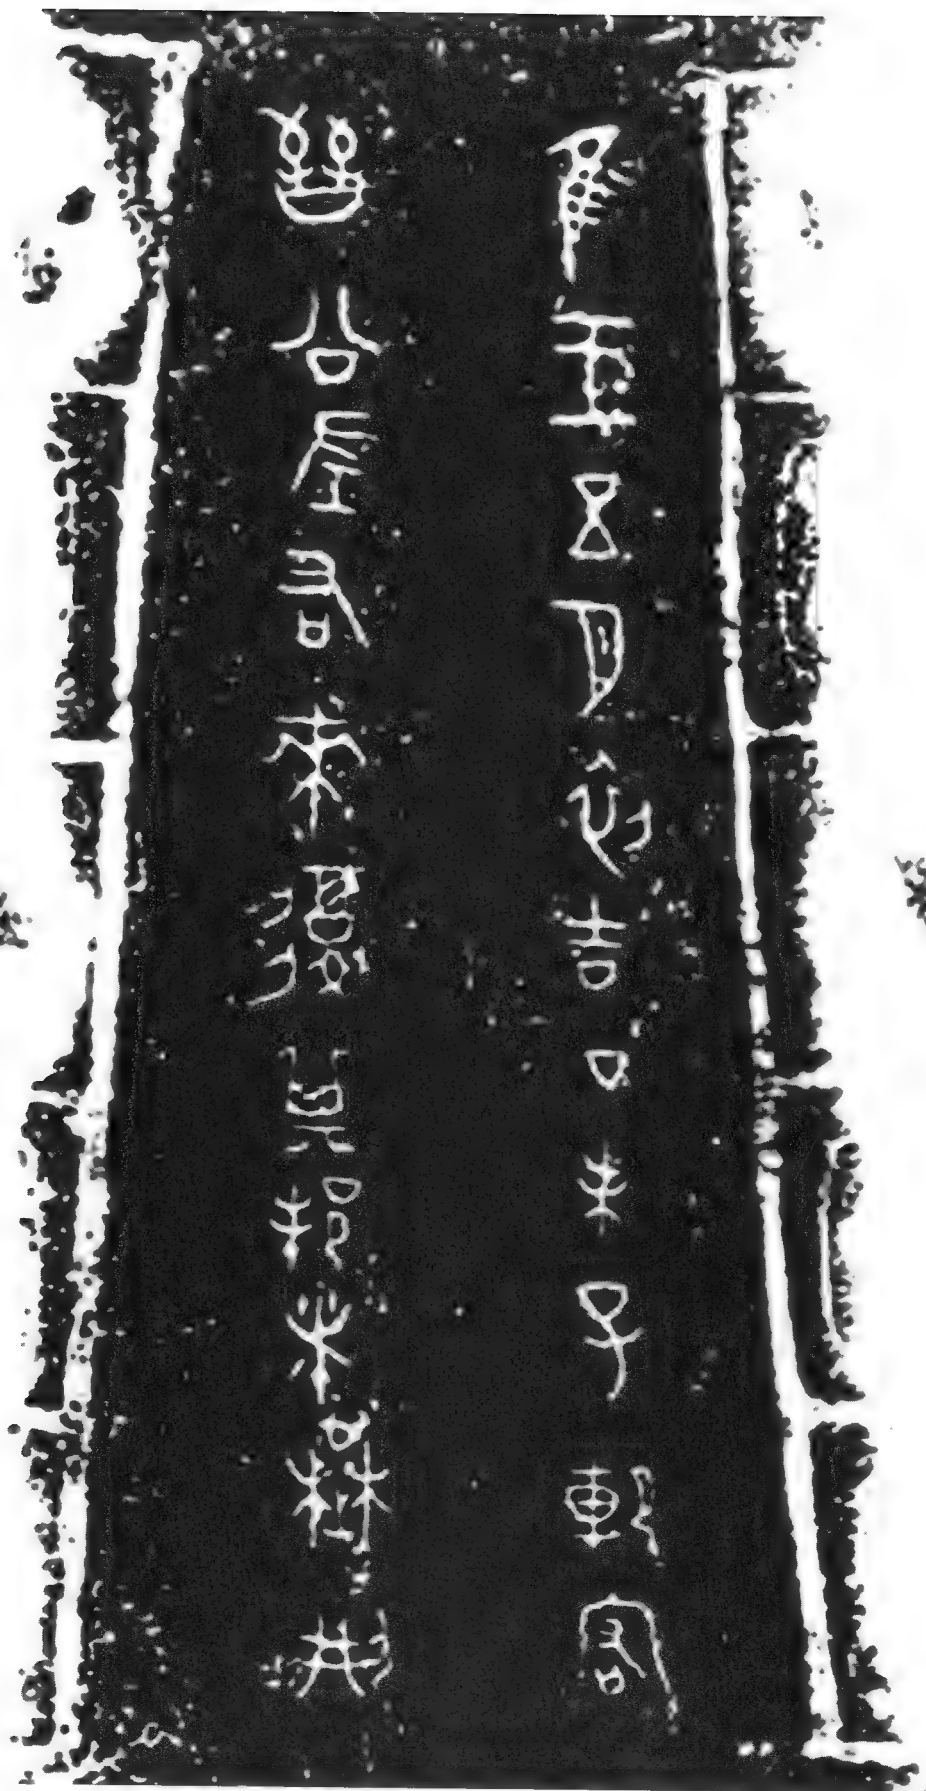 隹王五月初吉丁未子犯佑
晉公左右來復其邦者楚荊